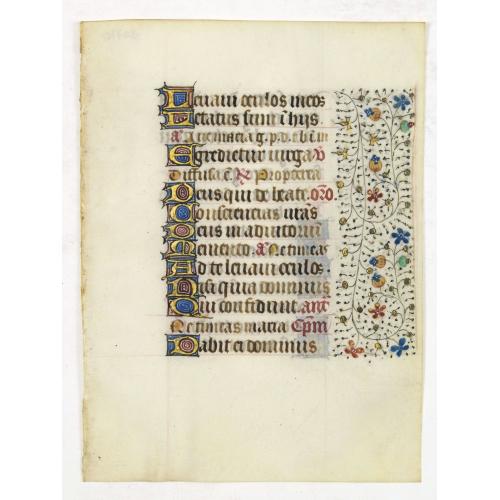 Levavi oculos meos
Letatus sum i hijs
a Ave maria g. p. d. t b i m
Egredietur virga v
Diffusa e. R Propterea
Deus qui de beate. oro.
Consciencias nras
Deus in adiutoriu
Memento. a Ne timeas
Ad te levavi oculos.
Nisi quia dominus
Qui confidunt. ant
Ne timeas maria Cpm
Dabit ei dominus